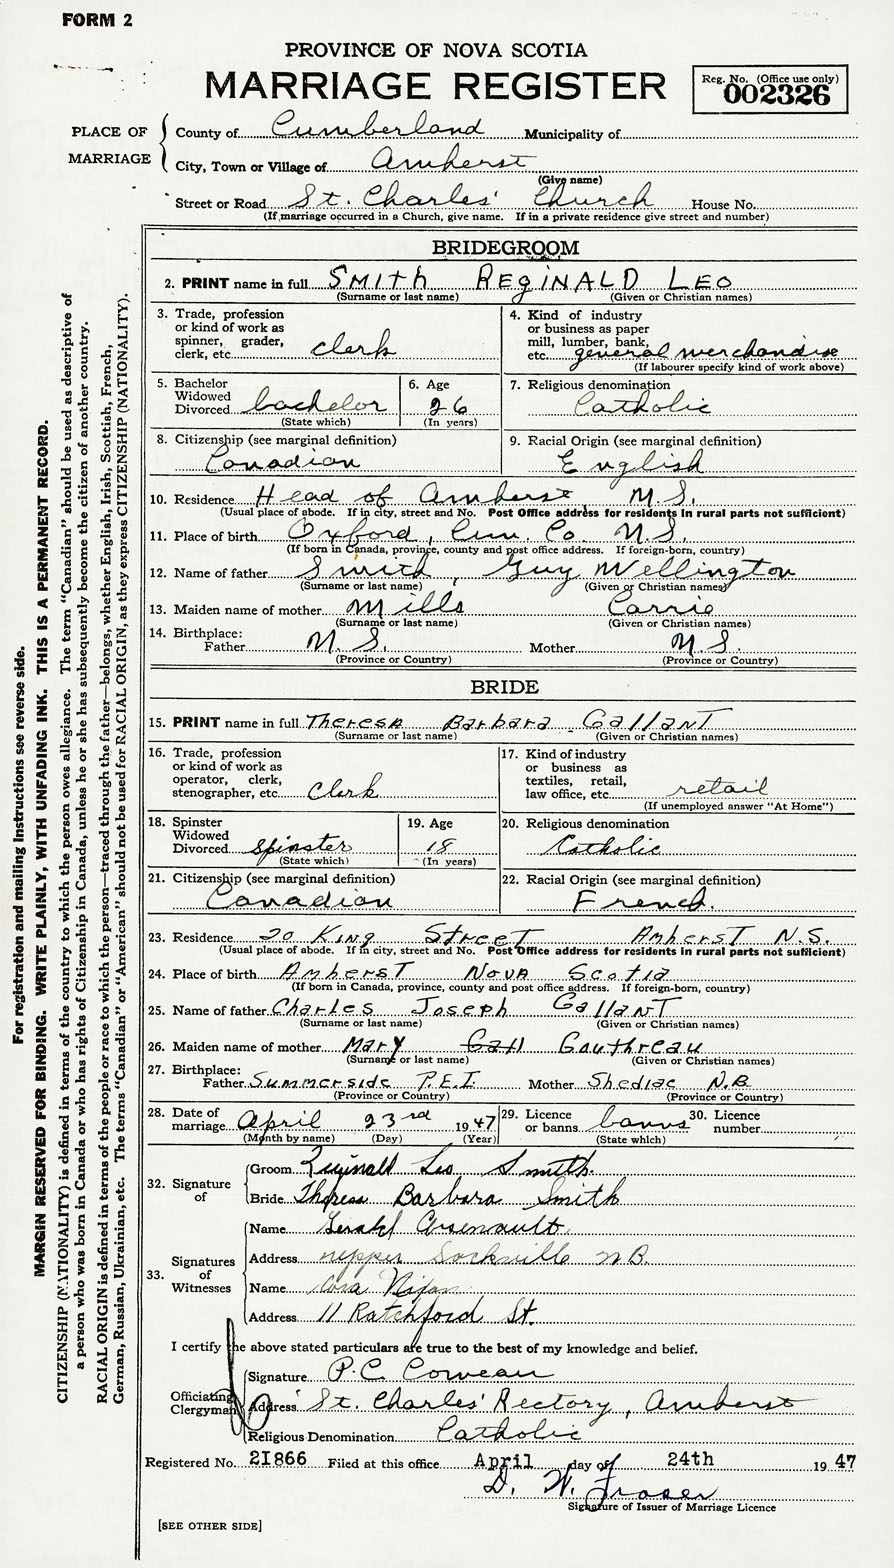 FORM 2
PROVINCE OF NOVA SCOTIA
MARRIAGE REGISTER
Reg. No. (Office use only)
002326
PLACE OF MARRIAGE
County of Cumberland Municipality of
City, Town or Village of Amherst
(Give name)
Street or Road St. Charles' Church House No.
(If marriage occurred in a Church, give name. If in a private residence give street and number)
BRIDEGROOM
2. PRINT name in full SMITH REGINALD LEO
(Surname or last name) (Given or Christian names)
3. Trade, profession
or kind of work as
spinner, grader,
clerk, etc. clerk
4. Kind of industry
or business as paper
mill, lumber, bank,
etc. general merchandise
(If labourer specify kind of work above)
5. Bachelor
Widowed
Divorced bachelor
(State which)
6. Age
26
(In years)
7. Religious denomination
Catholic
8. Citizenship (see marginal definition)
Canadian
9. Racial Origin (see marginal definition)
English
10. Residence Head of Amherst N.S.
(Usual place of abode. If in city, street and No. Post Office address for residents in rural parts not sufficient)
11. Place of birth Oxford, Cum. Co. N.S.
(If born in Canada, province, county and post office address. If foreign-born, country)
12. Name of father Smith, Guy Wellington
(Surname or last name) (Given or Christian names)
13. Maiden name of mother Mills Carrie
(Surname or last name) (Given or Christian names)
14. Birthplace:
Father N.S. Mother N.S.
(Province or Country) (Province or Country)
BRIDE
15. PRINT name in full Theresa Barbara Gallant
(Surname or last name) (Given or Christian names)
16. Trade, profession
or kind of work as
operator, clerk,
stenographer, etc. Clerk
17. Kind of industry
or business as
textiles, retail,
law office, etc. retail
(If unemployed answer "At Home")
18. Spinster
Widowed
Divorced Spinster
(State which)
19. Age
18
(In years)
20. Religious denomination
Catholic
21. Citizenship (see marginal definition)
Canadian
22. Racial Origin (see marginal definition)
French.
23. Residence 20 King Street Amherst N.S.
(Usual place of abode. If in city, street and No. Post Office address for residents in rural parts not sufficient)
24. Place of birth Amherst Nova Scotia
(If born in Canada, province, county and post office address. If foreign-born, country)
25. Name of father Charles Joseph Gallant
(Surname or last name) (Given or Christian names)
26. Maiden name of mother Mary Gall Gouthreau
(Surname or last name) (Given or Christian names)
27. Birthplace:
Father Summerside P.E.I. Mother Shediac N.B
(Province or Country) (Province or Country)
28. Date of
marriage April 23rd 1947
(Month by name) (Day) (Year)
29. Licence
or banns banns
(State which)
30. Licence
number
32. Signature
of
Groom Reginald Leo Smith.
Bride Theresa Barbara Smith
33. Signatures
of
Witnesses
Name Gerald Arsenault.
Address upper Sackville N.B.
Name Nifan
Address 11 Ratchford St.
I certify the above stated particulars are true to the best of my knowledge and belief.
Officiating
Clergyman
Signature P.C.
Address St. Charles' Rectory, Amherst
Religious Denomination Catholic
Registered No. 21866 Filed at this office April day of 24th 1947
D. W. Fraser
Signature of Issuer of Marriage Licence
[SEE OTHER SIDE]
For registration and mailing instructions see reverse side.
MARGIN RESERVED FOR BINDING. WRITE PLAINLY, WITH UNFADING INK. THIS IS A PERMANENT RECORD.
CITIZENSHIP (NATIONALITY) is defined in terms of the country to which the person owes allegiance. The term "Canadian" should be used as descriptive of
a person who was born in Canada or who has rights of Citizenship in Canada, unless he or she has subsequently become the citizen of another country.
RACIAL ORIGIN is defined in terms of the people or race to which the person—traced through the father—belongs, whether English, Irish, Scottish, French,
German, Russian, Ukrainian, etc. The terms "Canadian" or "American" should not be used for RACIAL ORIGIN, as they express CITIZENSHIP (NATIONALITY).